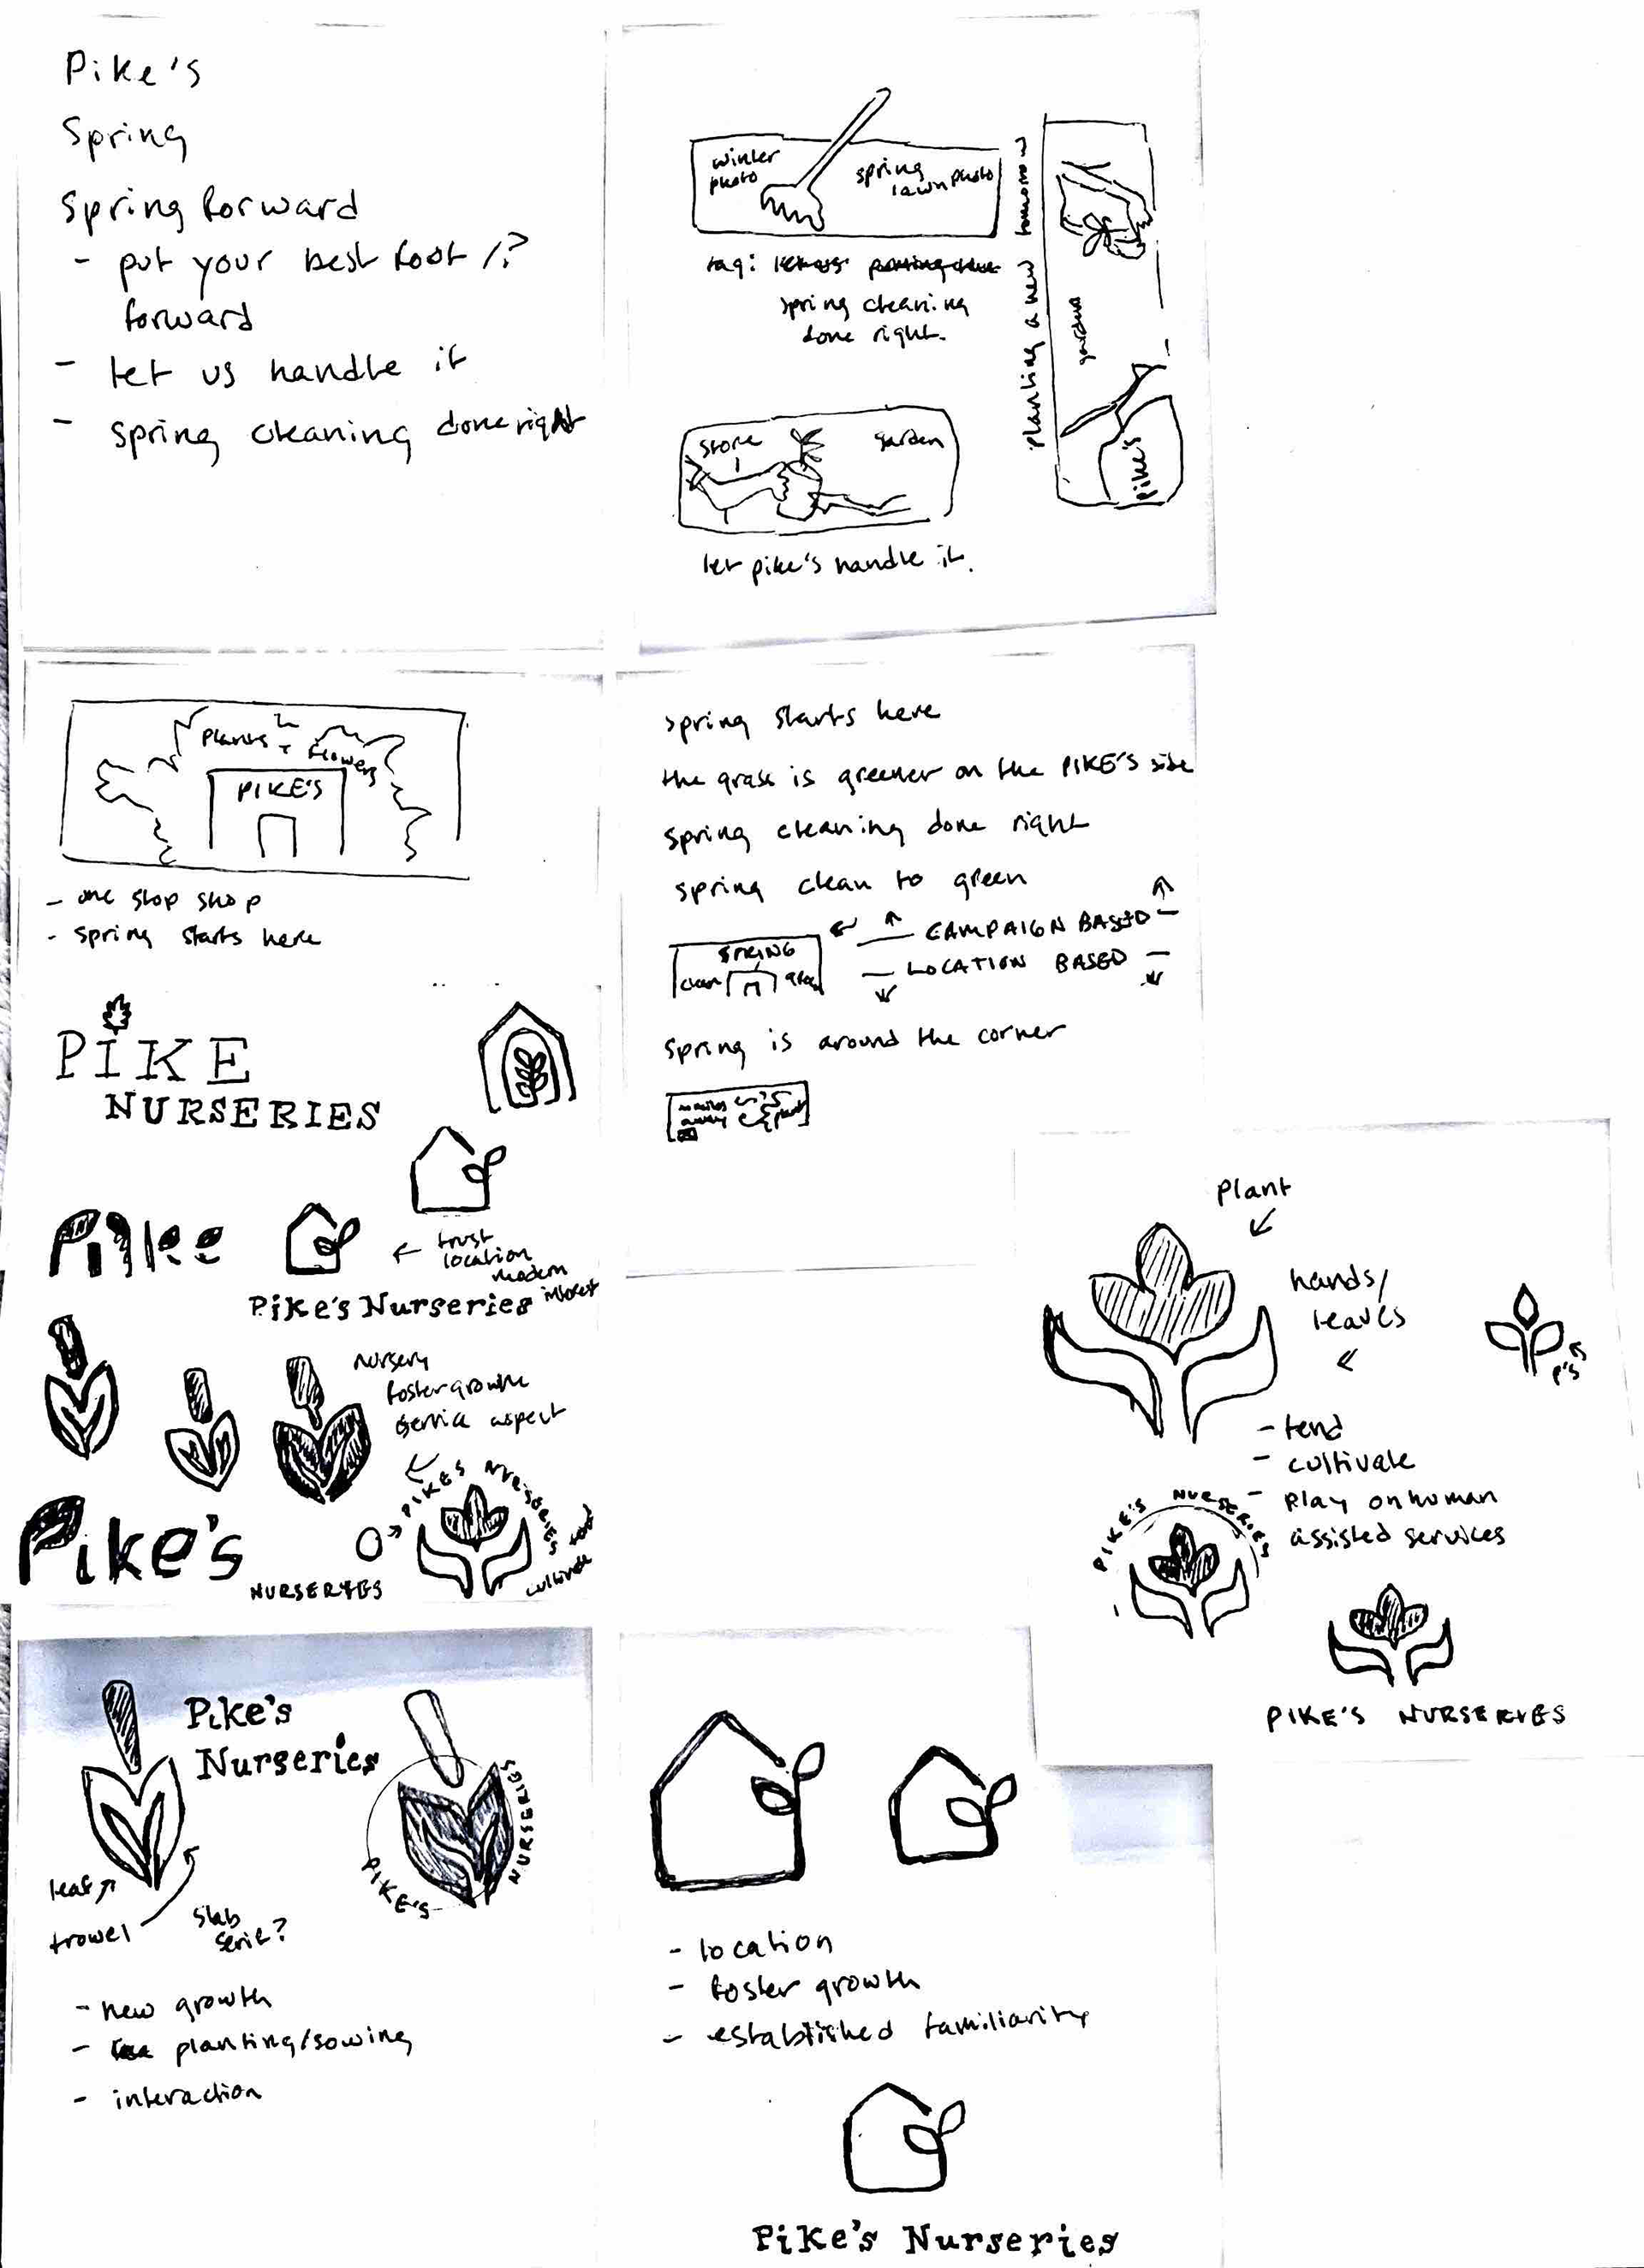 Pike's
Spring
Spring forward
- put your best foot /?
forward
- let us handle it
- spring cleaning done right
winter
photo
spring
lawn photo
tag:
spring cleaning
done right.
store
garden
let pike's handle it.
planting a new tomorrow
garden
pike's
Plants +
flowers
PIKE'S
- one stop shop
- spring starts here
spring starts here
the grass is greener on the PIKE'S side
spring cleaning done right
spring clean to green
CAMPAIGN BASED
LOCATION BASED
SPRING
clean
spring is around the corner
away
plants
PIKE
NURSERIES
Pike
trust
location
modern
Pike's Nurseries
nursery
foster growth
service aspect
PIKE'S NURSERIES
cultivate
Pike's
NURSERIES
plant
hands/
leaves
P's
- tend
- cultivate
- play on human
assisted services
PIKE'S NURSERIES
PIKE'S NURSERIES
Pike's
Nurseries
leaf
trowel
slab
serif?
PIKE'S
NURSERIES
- new growth
- planting/sowing
- interaction
- location
- foster growth
- established familiarity
Pike's Nurseries